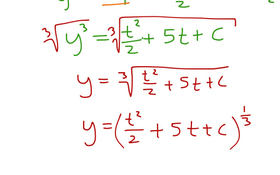 ∛y³ = ∛(t²/2 + 5t + C)
y = ∛(t²/2 + 5t + C)
y = (t²/2 + 5t + C)^(1/3)